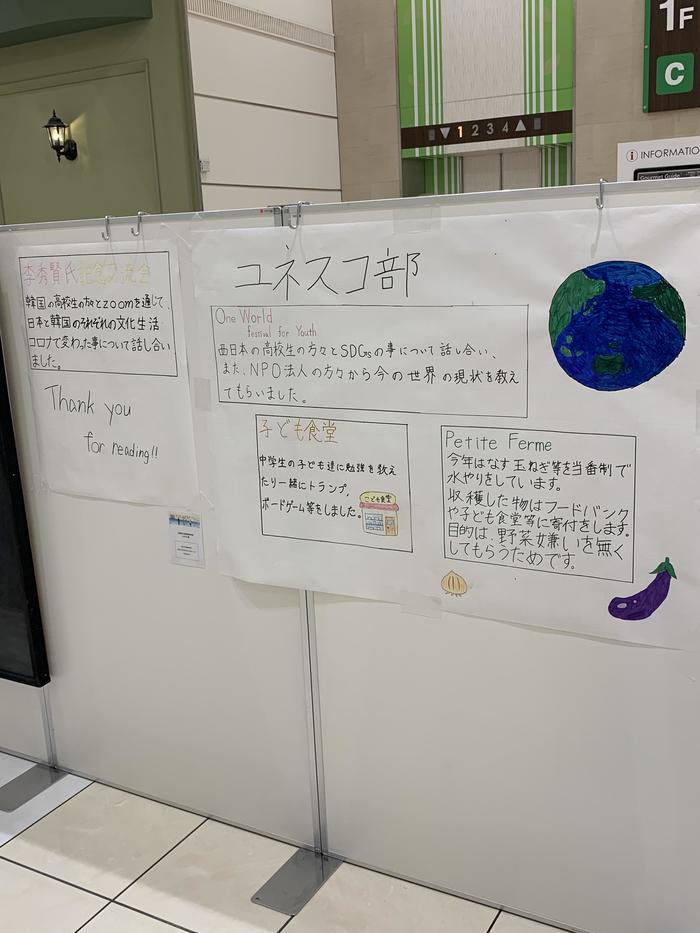 1F
C
1 2 3 4
INFORMATIO
Gourmet Guide
李秀賢氏記念交流会
韓国の高校生の方々とzoomを通じて、
日本と韓国のそれぞれの文化生活
コロナで変わった事について話し合い
ました。
Thank you
for reading!!
ユネスコ部
One World
festival for Youth
西日本の高校生の方々とSDGsの事について話し合い、
また、NPO法人の方々から今の世界の現状を教え
てもらいました。
子ども食堂
中学生の子ども達に勉強を教え
たり一緒にトランプ,
ボードゲーム等をしました。
こども食堂
Petite Ferme
今年はなす玉ねぎ等を当番制で
水やりをしています。
収穫した物はフードバンク
や子ども食堂等に寄付をします。
目的は、野菜嫌いを無く
してもらうためです。